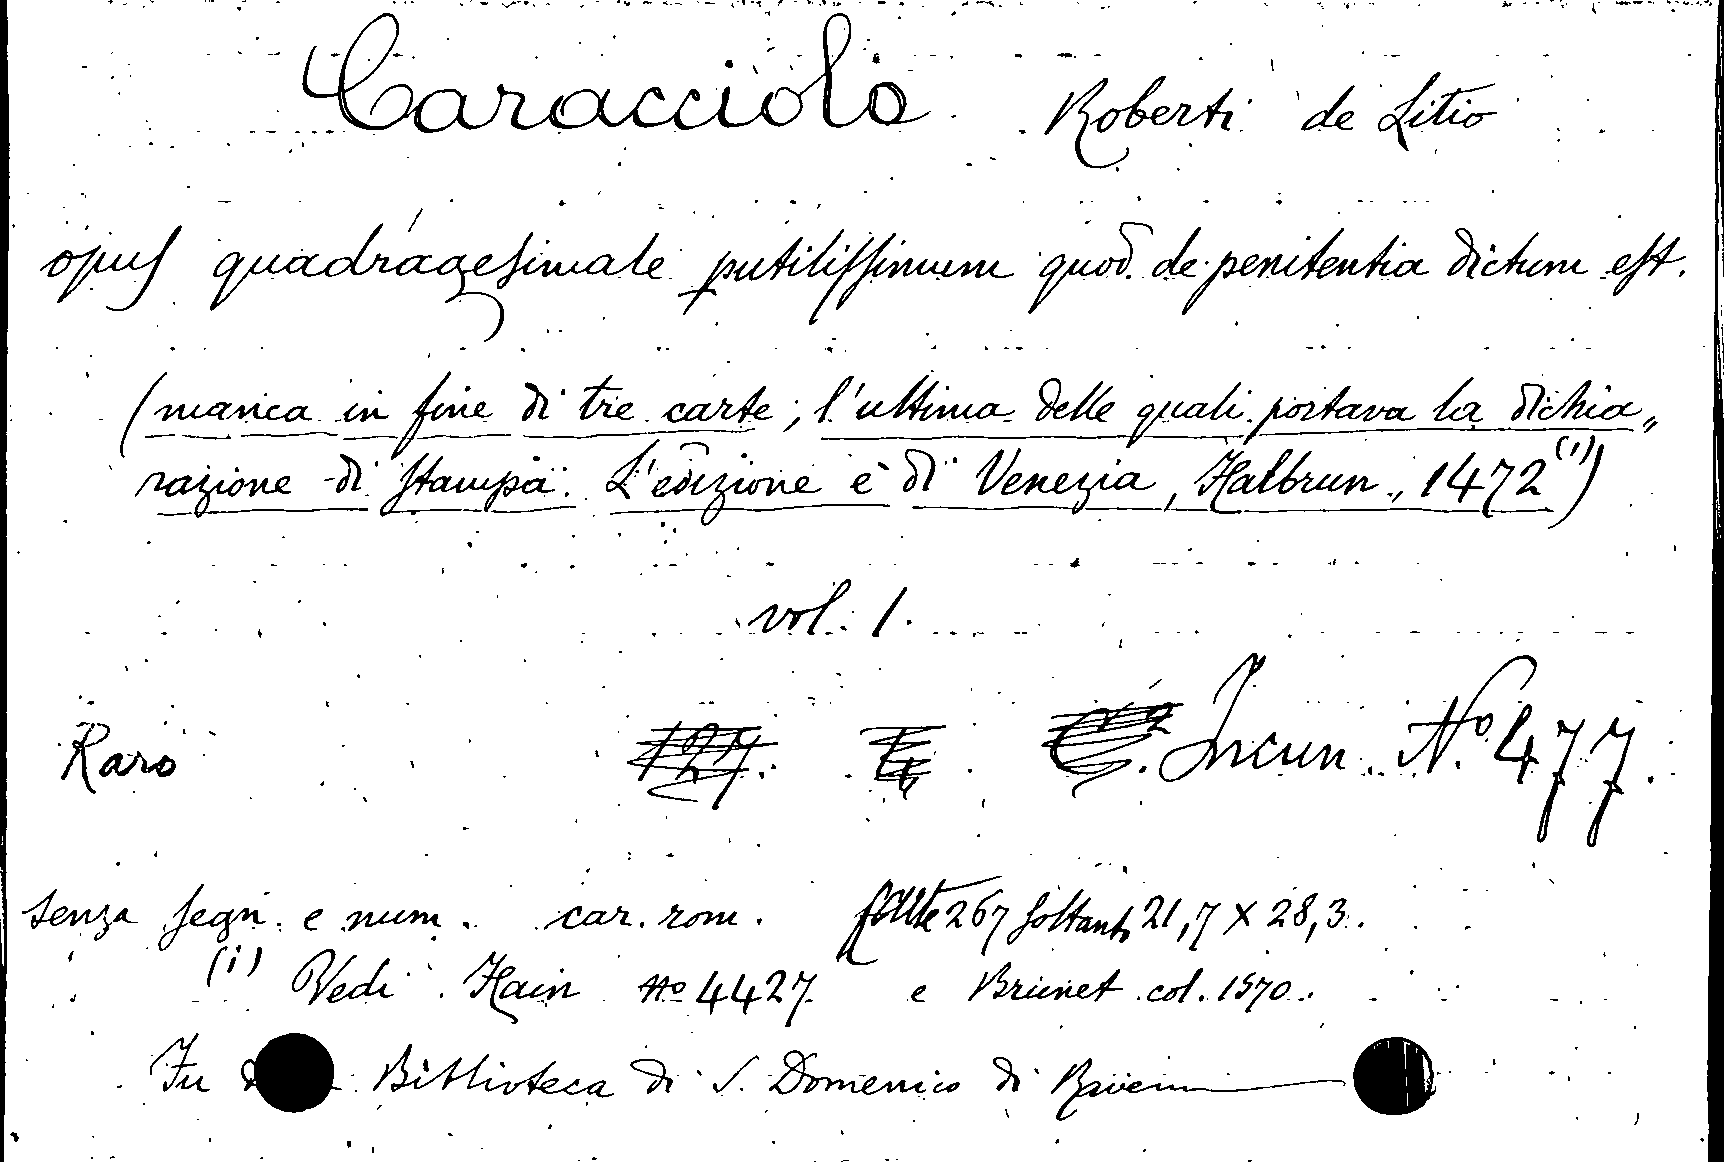 Caracciolo Roberti de Litio
opus quadragesimale putilissimum quod. de penitentia dictum est.
(manca in fine di tre carte; l'ultima delle quali portava la dichia„
razione di stampa. L'edizione è di Venezia, Halbrun, 1472(1))
vol. 1.
Raro Incun. No. 477.
senza segn. e num. car. rom. 267 soltanto 21,7 X 28,3.
(1) Vedi Hain No 4427 e Brunet col. 1570.
Fu Biblioteca di S. Domenico di